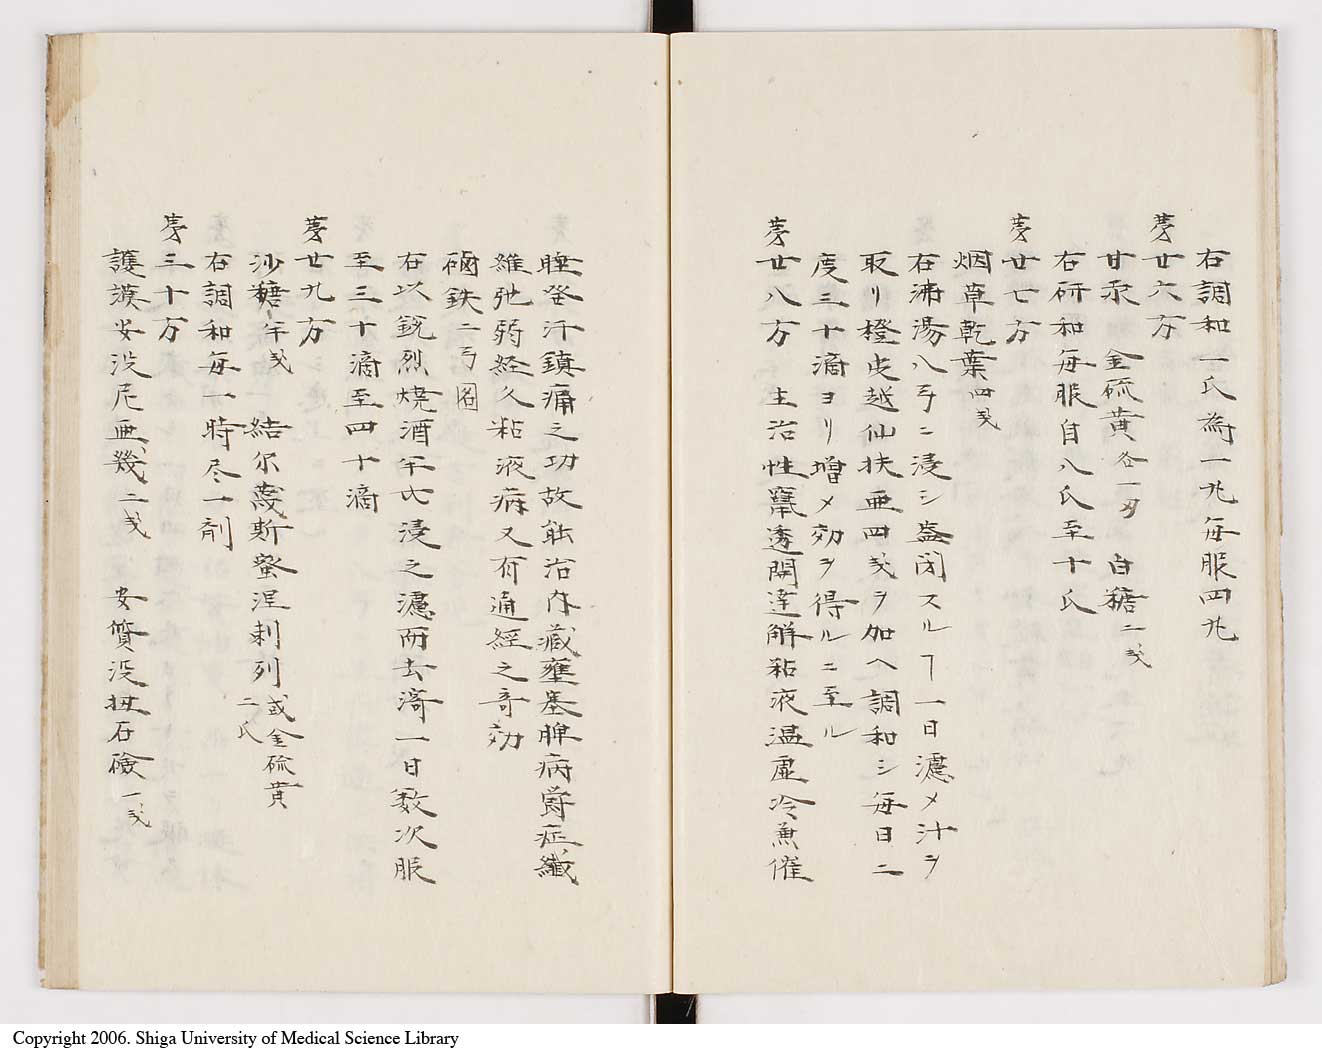 右調和一氏為一丸毎服四丸
葠廿六方
甘汞 金硫黄各一匁 白糖二戔
右研和毎服自八氏至十氏
葠廿七方
烟草乾葉四戔
右沸湯八ヲンニ浸シ盎閉スルヿ一日濾メ汁ヲ
取リ橙皮越仙扶亜四戔ヲ加ヘ調和シ毎日二
度三十滴ヨリ増メ効ヲ得ルニ至ル
葠廿八方 主治性竄透開達解粘液温虚冷兼催
睡発汗鎮痛之功故能治内蔵壅塞脾病欝症纎
維弛弱経久粘液病又有通経之奇効
磠鉄二ヲ
右以鋭烈焼酒牢亡浸之濾而去滓一日数次服
至三十滴至四十滴
葠廿九方
沙糖半戔 結尓蔑斯蛮涅刺列或金硫黄
二氏
右調和毎一時尽一剤
葠三十方
護謨安没尼亜幾二戔 安質没扭石鹸一戔
Copyright 2006. Shiga University of Medical Science Library